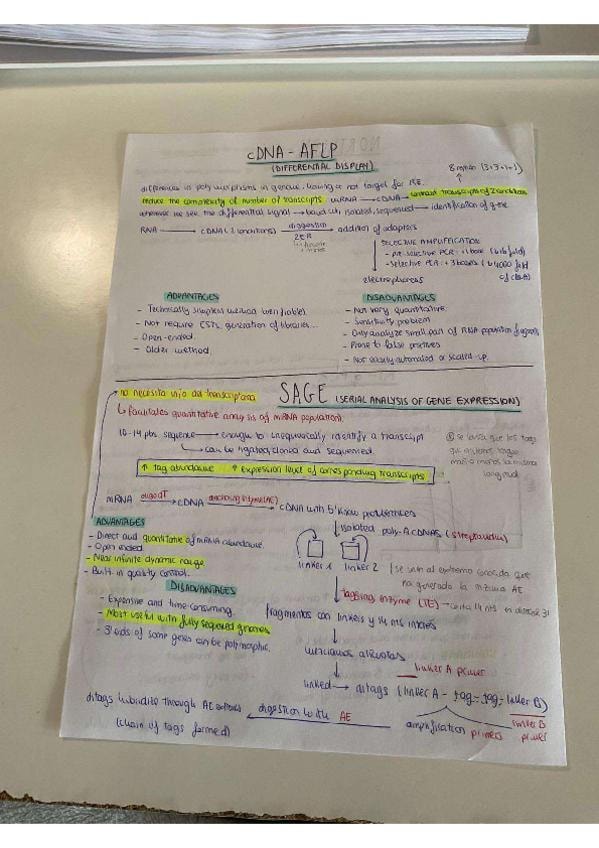 cDNA - AFLP
(DIFFERENTIAL DISPLAY)
differences in polymorphisms in genome, having or not target for RE.
reduce the complexity of number of transcripts mRNA → cDNA → contrast transcripts of 2 conditions
wherever we see the differential signal → band cut, isolated, sequenced → identification of gene
RNA → cDNA (2 conditions) digestion 2 ER → addition of adaptors
SELECTIVE AMPLIFICATION
- Pre-selective PCR: +1 base
- Selective PCR: +3 bases
electrophoresis
ADVANTAGES
- Technically simplest method
- Not require ESTs, generation of libraries...
- Open-ended.
- Older method.
DISADVANTAGES
- Not very quantitative.
- Sensitivity problem
- Only analyze small part of RNA population
- Prone to false positives
- Not easily automated or scaled-up.
no necesita info del transcriptoma
SAGE (SERIAL ANALYSIS OF GENE EXPRESSION)
↳ facilitates quantitative analysis of mRNA population.
10-14 pbs sequence → enough to unequivocally identify a transcript
↳ can be ligated, cloned and sequenced.
↑ tag abundance ↑ expression level of corresponding transcripts
se basa que los tags
la misma
longitud
mRNA oligo dT → cDNA anchoring enzyme (AE) → cDNA with 5' know protuberances
↓ isolated poly-A cDNAs (streptavidin)
linker 1 linker 2
se unen al extremo conocido que
ha generado la enzima AE
↓ tagging enzyme (TE) → corta 14 nts en dirección 3'
fragmentos con linkers y 14 nts internos
linked → ditags (linker A - tag - tag - linker B)
linker A primer
linker B primer
amplification primers
digestion with AE
ditags hybridize through AE
(chain of tags formed)
ADVANTAGES
- Direct and quantitative of mRNA abundance.
- Open ended.
- Near infinite dynamic range
- Built-in quality control.
DISADVANTAGES
- Expensive and time-consuming.
- Most useful with fully sequenced genomes
- 3' ends of some genes can be polymorphic.